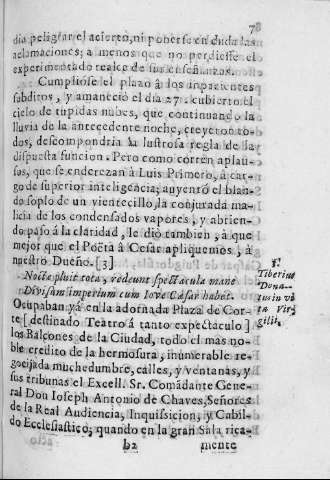 78
dio peligrar el acierto, ni ponerse en duda las
aclamaciones; a menos que no perdiesse el
experimentado realce de sus enseñanzas.
Cumpliòse el plazo â los inpacientes
subditos, y amaneciò el dia 27. cubierto el
cielo de tupidas nubes, que continuando la
lluvia de la antecedente noche, creyeron to-
dos, descompondria la lustrosa regla de la
dispuesta funcion. Pero como corren aplau-
sos, que se enderezan à Luis Primero, à car-
go de superior inteligencia; auyentó el blan-
do soplo de un vientecillo, la conjurada ma-
licia de los condensados vapores, y abrien-
do paso á la claridad, le diò tambien, à que
mejor que el Poëta â Cesar apliquemos, à
nuestro Dueño. [3]
Nocte pluit tota, redeunt spectacula mane
Divisum imperium cum Iove Cæsar habet.
Ocupaban yá en la adornada Plaza de Cor-
te [destinado Teatro á tanto expectaculo]
los Balcones de la Ciudad, todo el mas no-
ble credito de la hermosura, inumerable re-
gocijada muchedumbre, calles, y ventanas, y
sus tribunas el Excell. Sr. Comãdante Gene-
ral Don Ioseph Antonio de Chaves, Señores
de la Real Audiencia, Inquisicion, y Cabil-
do Ecclesiastico; quando en la gran Sala rica-
ba mente
Tiberius
Dona-
tus in vi
ta Vir-
gilii.